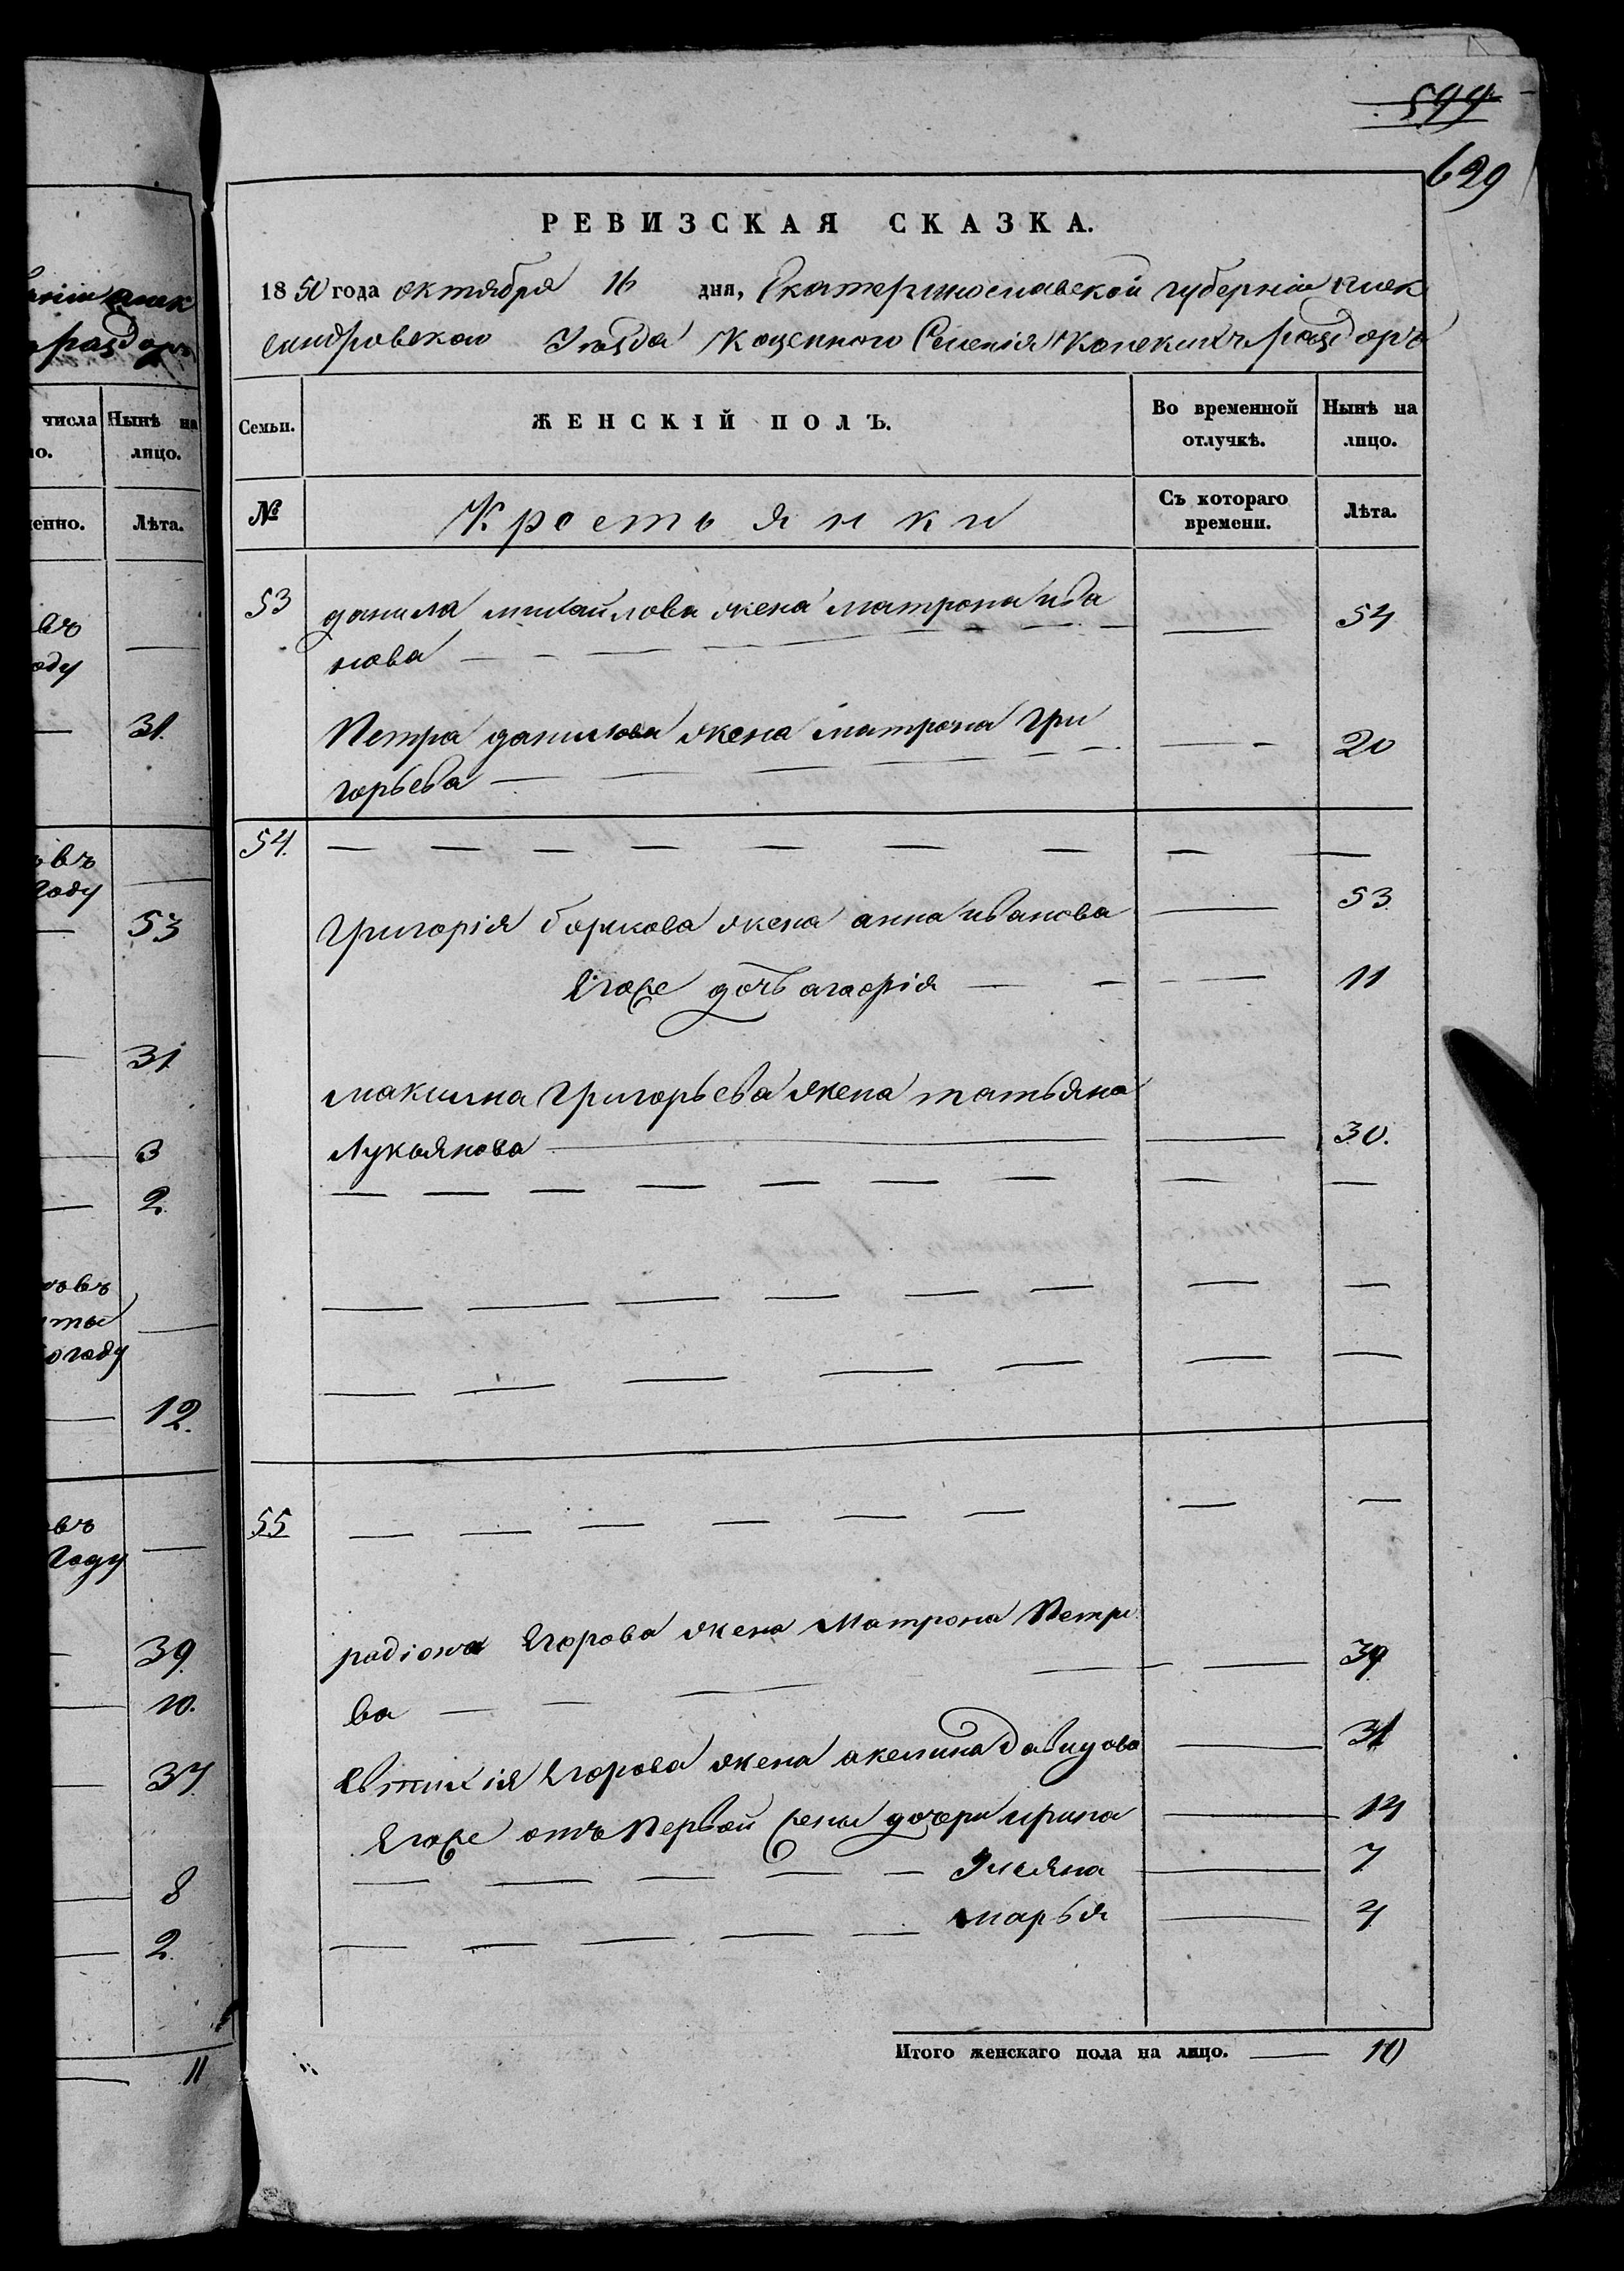 599
629
РЕВИЗСКАЯ СКАЗКА.
1850 года октября 16 дня, Екатеринославской губерніи Алек
сандровскаго Уезда Казенного Селенія Конскихъ Раздоръ
Семьи.
ЖЕНСКІЙ ПОЛЪ.
Во временной отлучкѣ.
Нынѣ на лицо.
№
Крестьянки
Съ котораго времени.
Лѣта.
53 данила михайлова жена матрона ива — 54
нова
Петра данилова жена матрона гри — 20
горьева
54.
григорія борисова жена анна иванова — 53
Егоже дочь агафія — 11
максима григорьева жена татьяна
Лукьянова — 30.
55
радіона Егорова жена Матрона Петро — 39
ва
Евтихія Егорова жена акелина давидова — 31
Егоже отъ Первой жены дочери ирина — 14
Ульяна — 7
марья — 4
Итого женскаго пола на лицо. — 10
числа
Нынѣ на
лицо.
Лѣта.
въ
оду
31.
въ
году
53
31
3
2.
въ
году
12.
въ
году
39.
10.
37.
8
2.
11